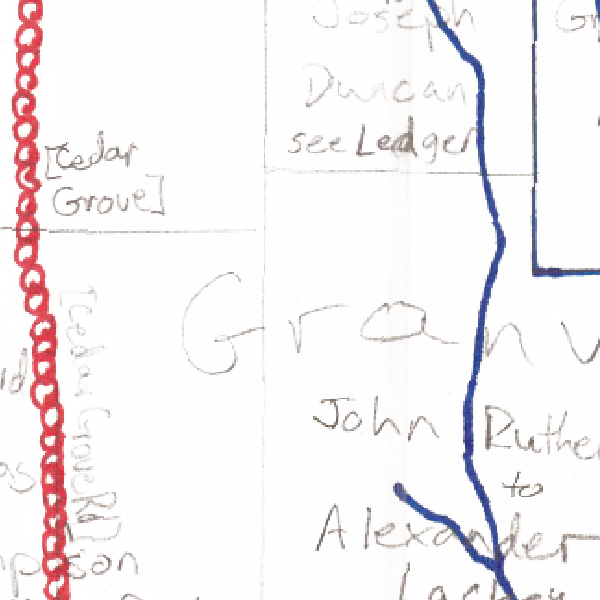 Joseph
Duncan
see Ledger
[Cedar
Grove]
[Cedar Grove Rd]
Gran
John Ruther
to
Alexander
Lackey
son